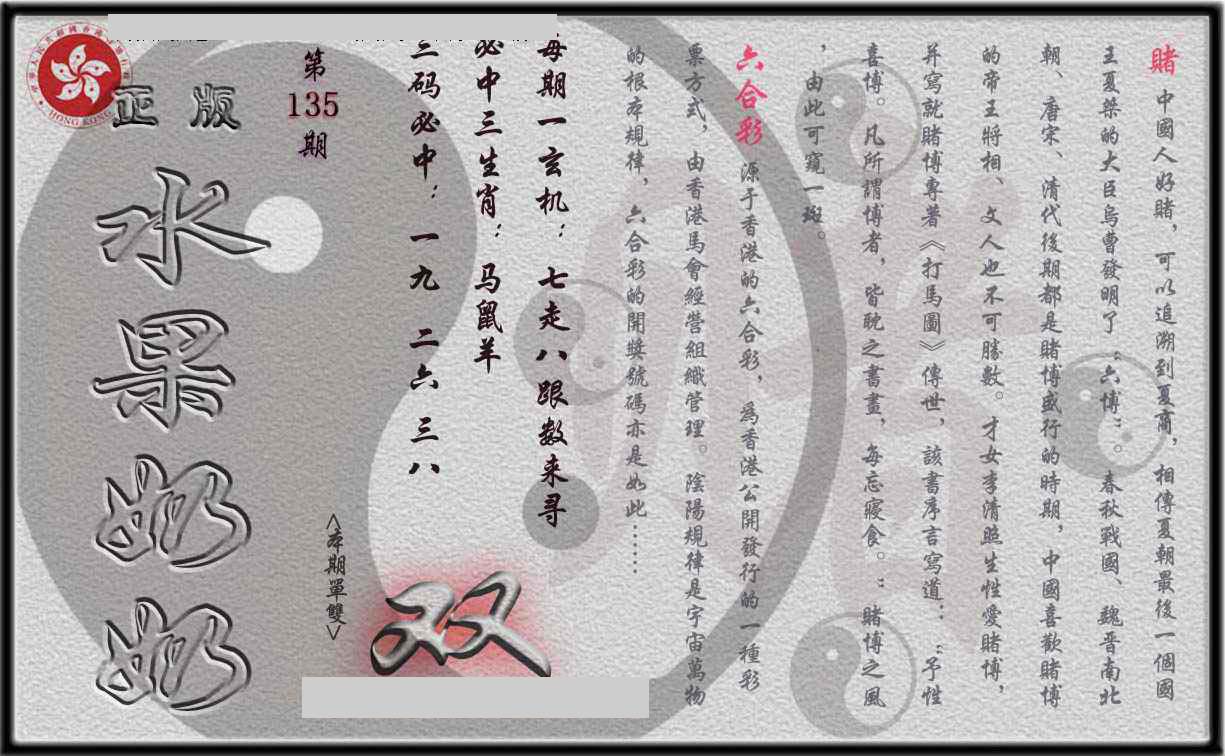 賭 中國人好賭，可以追溯到夏商，相傳夏朝最後一個國
王夏桀的大臣烏曹發明了“六博”。春秋戰國、魏晋南北
朝、唐宋、清代後期都是賭博盛行的時期，中國喜歡賭博
的帝王將相、文人也不可勝數。才女李清照生性愛賭博，
并寫就賭博專著《打馬圖》傳世，該書序言寫道：“予性
喜博。凡所謂博者，皆耽之書畫，每忘寢食。”賭博之風
，由此可窺一斑。
六合彩 源于香港的六合彩，為香港公開發行的一種彩
票方式，由香港馬會經營組織管理。陰陽規律是宇宙萬物
的根本規律，六合彩的開獎號碼亦是如此……
每期一玄机：七走八跟数来寻
必中三生肖：马鼠羊
三码必中：一九 二六 三八
第
135
期
<本期單雙>
双
正版
水果奶奶
HONG KONG